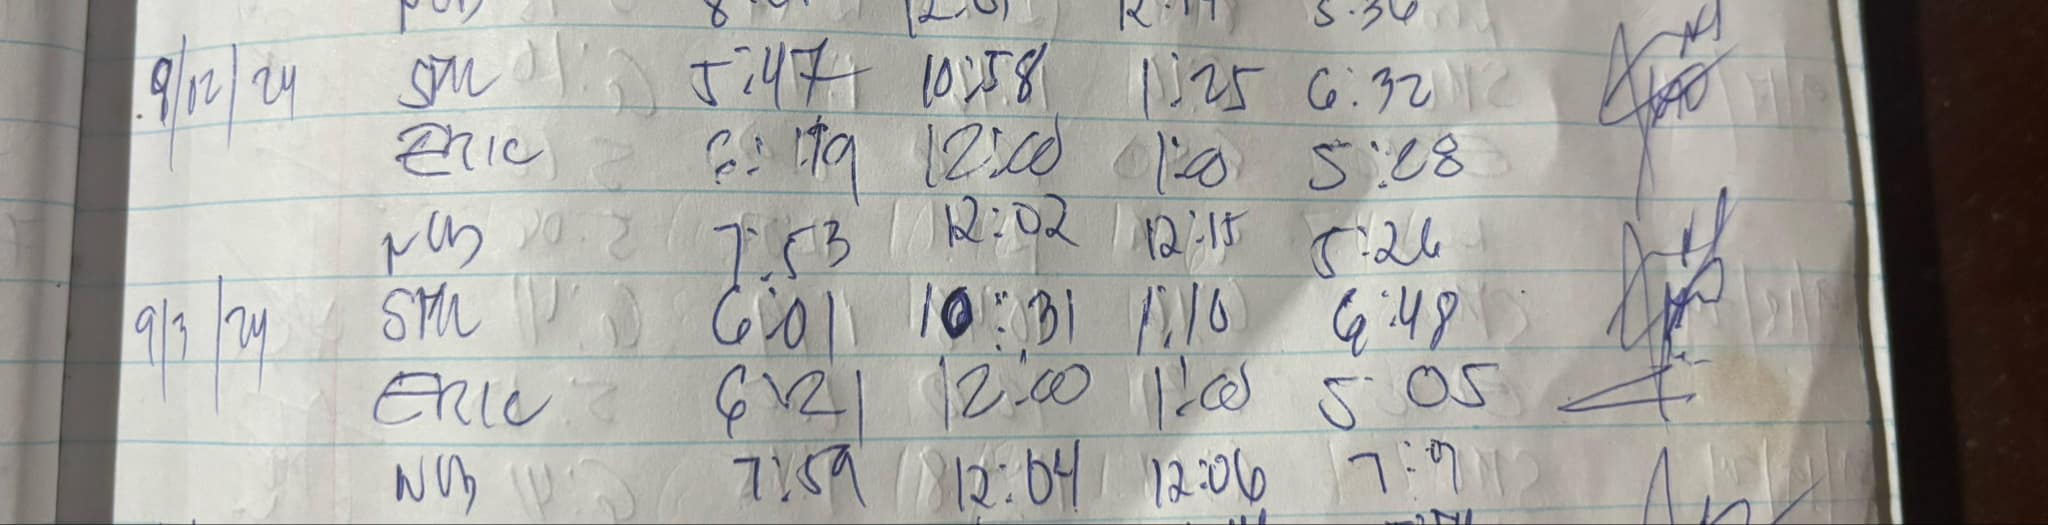 9/2/24 STU 5:47 10:58 1:25 6:32
ERIC 6:19 12:00 1:00 5:28
NUB 7:53 12:02 12:15 5:26
9/3/24 STU 6:01 10:31 1:10 6:48
ERIC 6:21 12:00 1:00 5:05
7:59 12:04 12:06 7:9